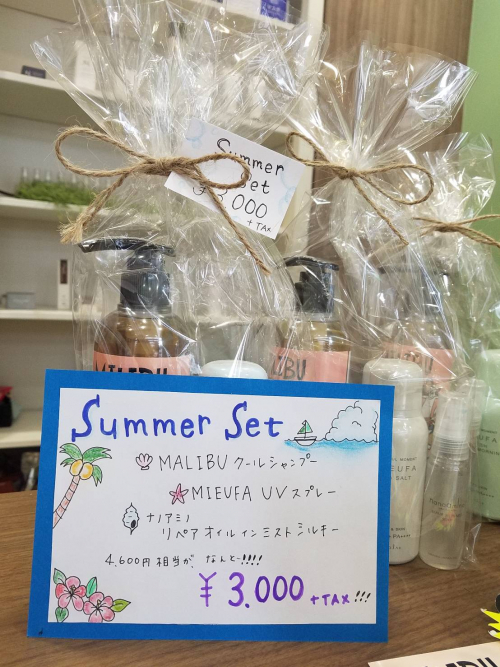 Summer
Set
3,000
+TAX
MALIBU
Summer Set
MALIBU クールシャンプー
MIEUFA UV スプレー
ナノアミノ
リペア オイル イン ミスト シルキー
4,600円 相当が、なんと−!!!!
¥3,000 +TAX!!!